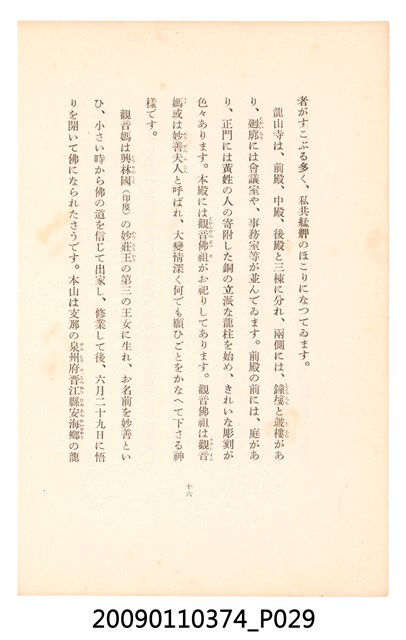 者がすこぶる多く、私共艋舺のほこりになつてゐます。
龍山寺は、前殿、中殿、後殿と三棟に分れ、兩側には、鐘樓と皷樓があ
り、廻廊には會議室や、事務室等が並んでゐます。前殿の前には、庭があ
り、正門には黃姓の人の寄附した銅の立派な龍柱を始め、きれいな彫刻が
色々あります。本殿には觀音佛祖がお祀りしてあります。觀音佛祖は觀音
媽或は妙善夫人と呼ばれ、大變情深く何でも願ひごとをかなへて下さる神
樣です。
觀音媽は興林國(印度)の妙莊王の第三の王女に生れ、お名前を妙善とい
ひ、小さい時から佛の道を信じて出家し、修業して後、六月二十九日に悟
りを開いて佛になられたさうです。本山は支那の泉州府晋江縣安海鄉の龍
十六
20090110374_P029